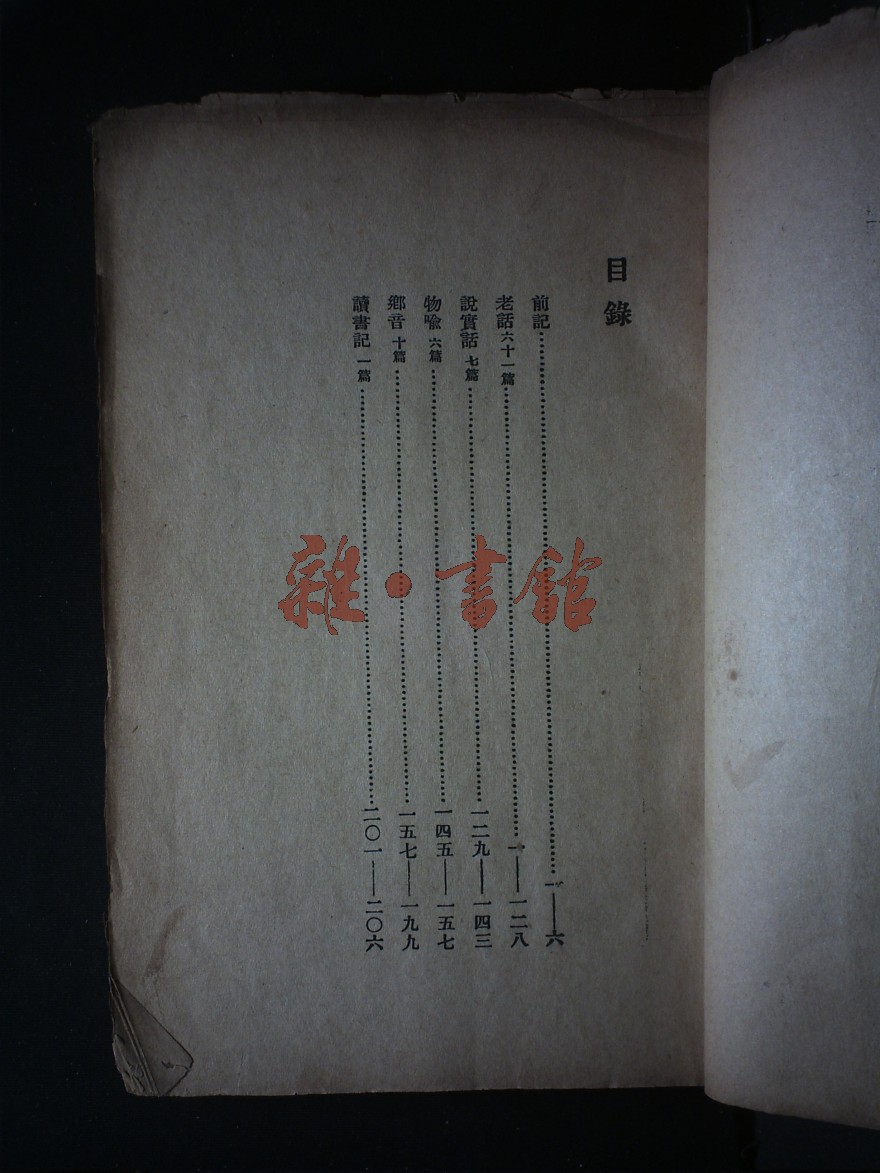 目錄
前記……一——六
老話 六十一篇……一——一二八
說實話 七篇……一二九——一四三
物喩 六篇……一四五——一五七
鄕音 十篇……一五七——一九九
讀書記 一篇……二〇一——二〇六
雜·書館